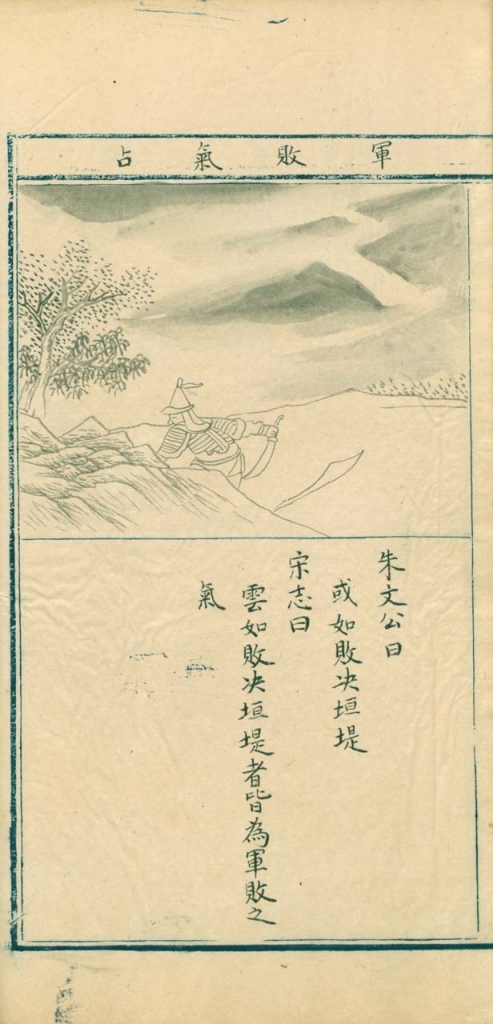 軍敗氣占
朱文公曰
或如敗决垣堤
宋志曰
雲如敗决垣堤者皆為軍敗之
氣